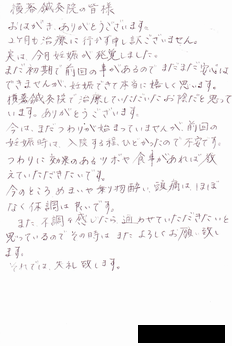 横幕鍼灸院の皆様
おはがき、ありがとうございます。
2ヶ月も治療に行けず申し訳ございません。
実は、今月妊娠が発覚しました。
まだ初期で前回の事があるのでまだまだ安心は
できませんが、妊娠できて本当に嬉しく思います。
横幕鍼灸院で治療していただいたお陰だと思って
います。ありがとうございます。
今は、まだつわりが始まっていませんが、前回の
妊娠時は、入院する程ひどかったので不安です。
つわりに効果のあるツボや食事があれば教
えていただきたいです。
今のところめまいや乗り物酔い、頭痛はほぼ
なく体調は良いです。
また、不調を感じたら通わせていただきたいと
思っているのでその時はまたよろしくお願い致し
ます。
それでは、失礼致します。